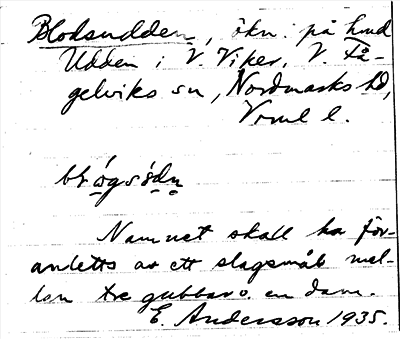 Blodsudden, ökn. på hmd
Udden i V. Viker, V. Få-
gelviks sn, Nordmarks hd,
Vrml l.
blógsö̀dn
Namnet skall ha för-
anletts av ett slagsmål mel-
lan tre gubbar o. en dam.
E. Andersson 1935.